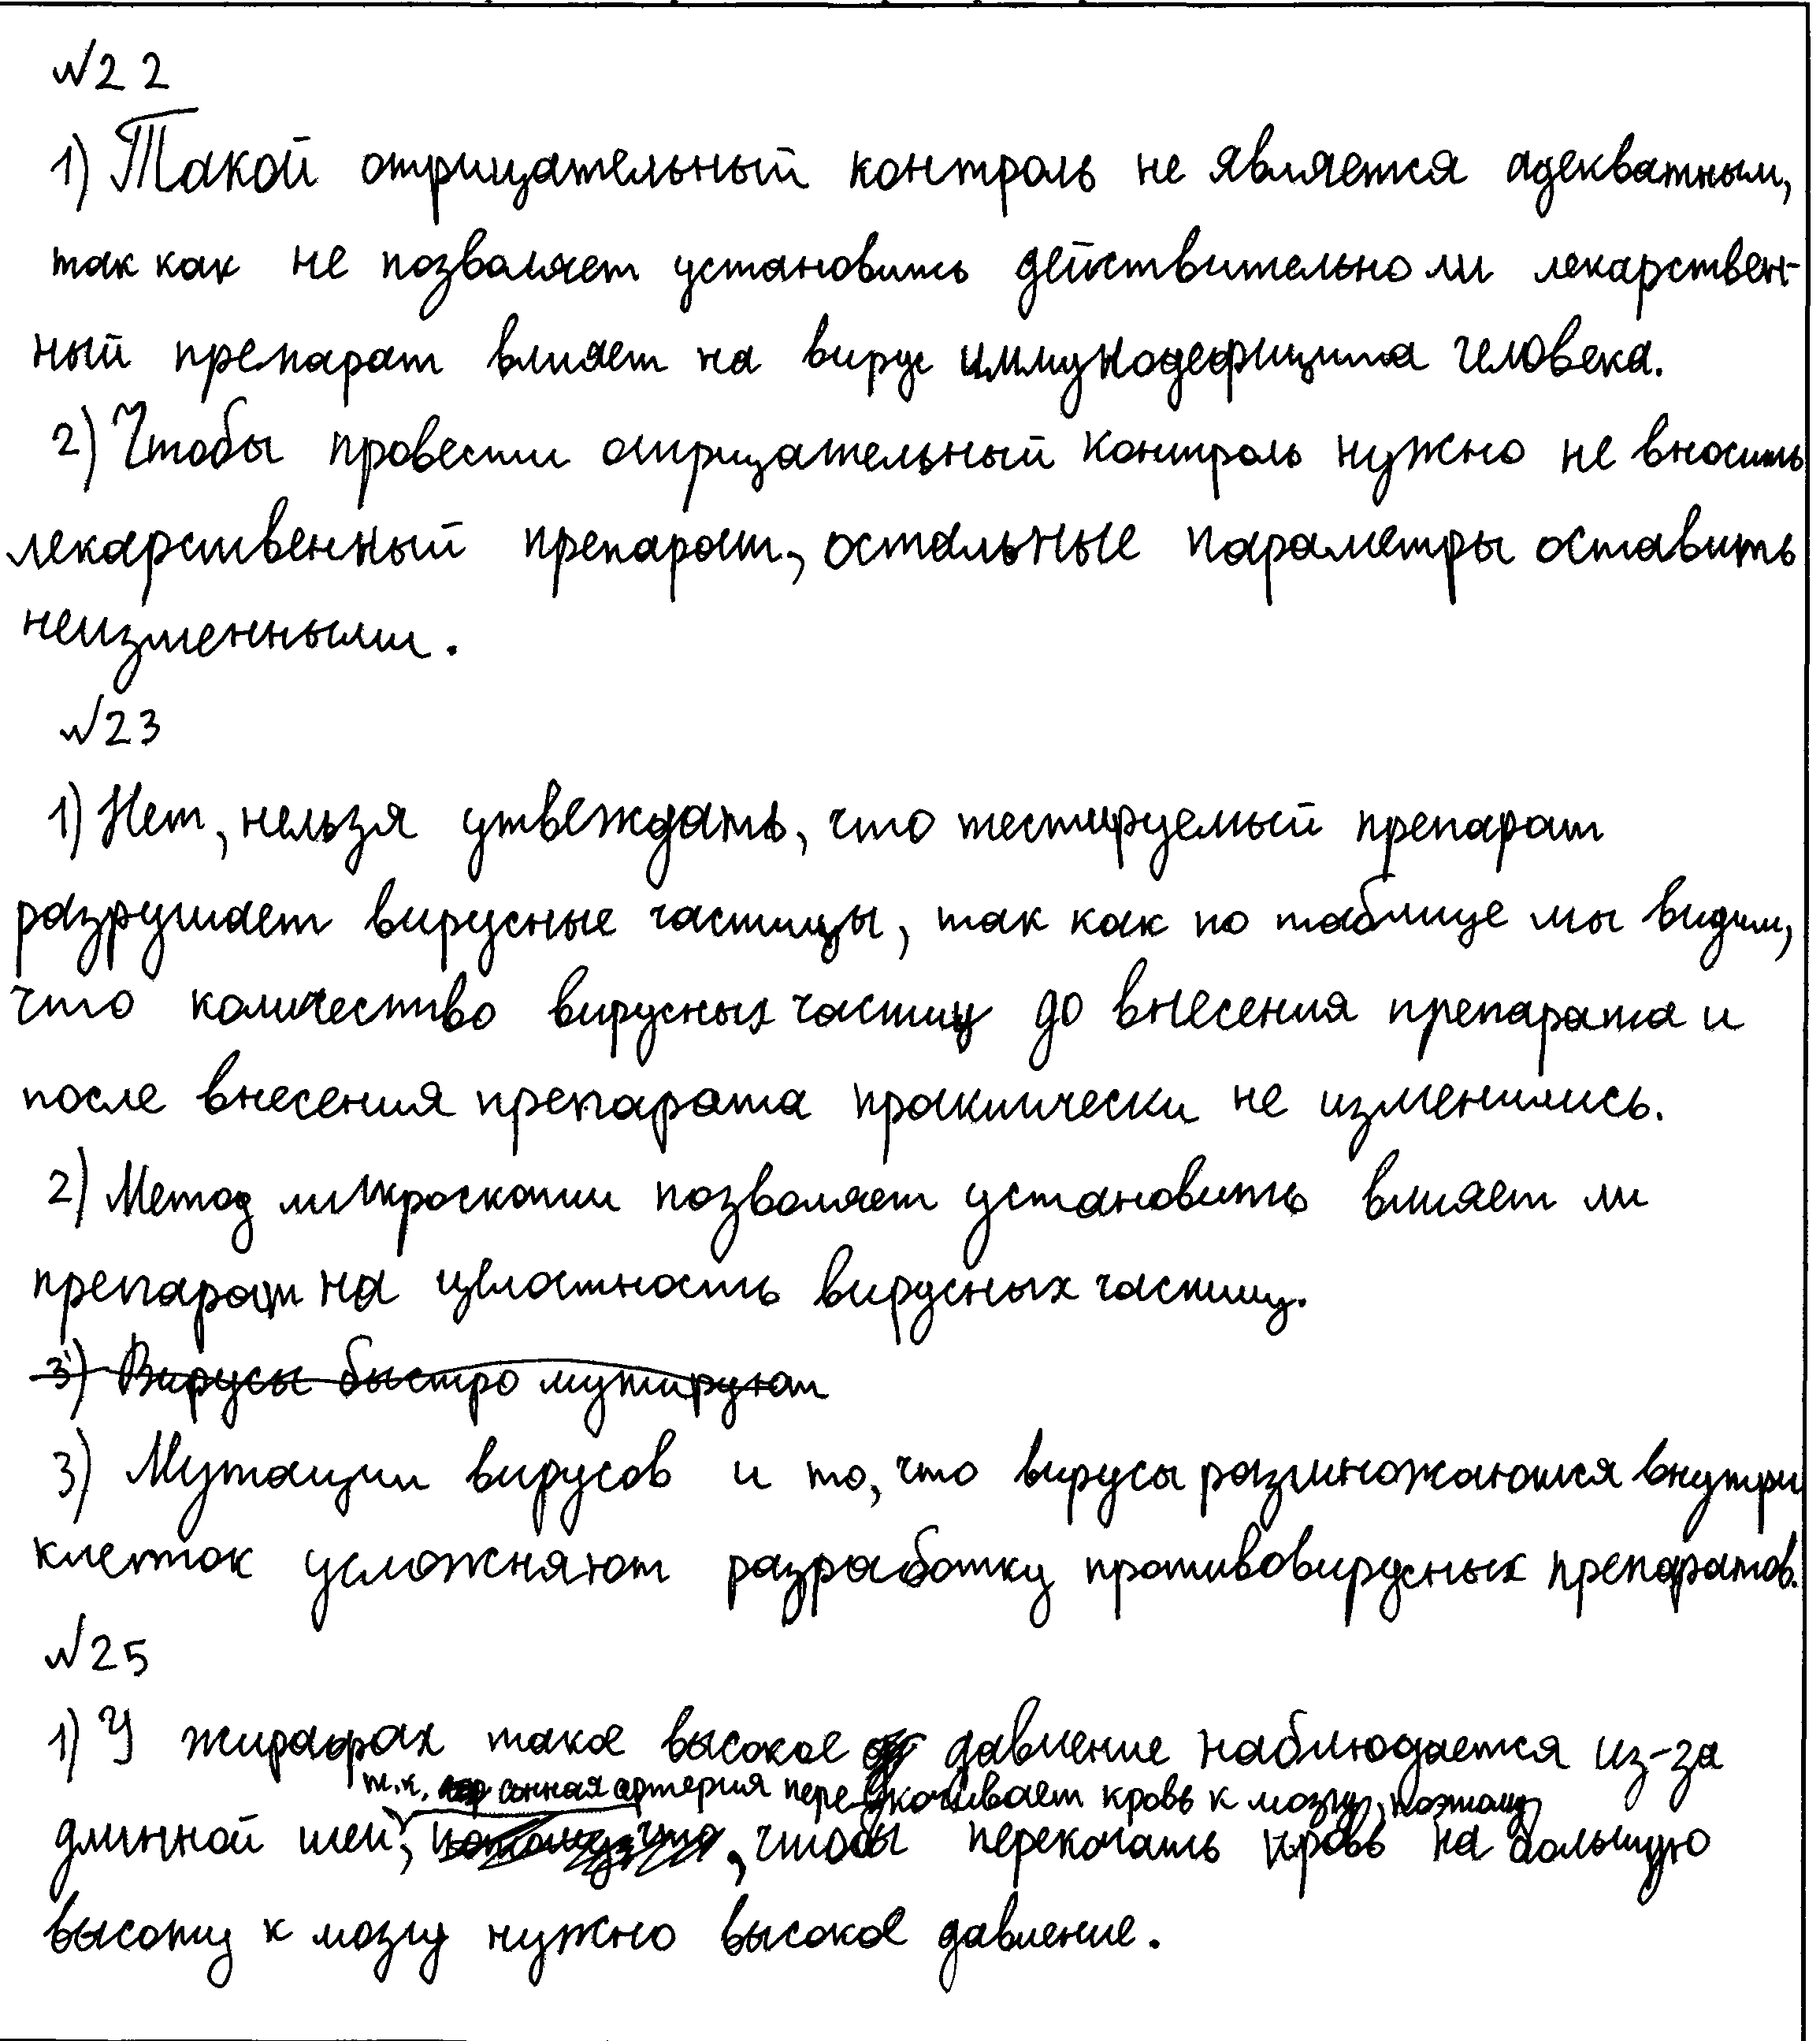 №22
1) Такой отрицательный контроль не является адекватным,
так как не позволяет установить действительно ли лекарствен-
ный препарат влияет на вирус иммунодефицита человека.
2) Чтобы провести отрицательный контроль нужно не вносить
лекарственный препарат, остальные параметры оставить
неизменными.
№23
1) Нет, нельзя утвеждать, что тестируемый препарат
разрушает вирусные частицы, так как по таблице мы видим,
что количество вирусных частиц до внесения препарата и
после внесения препарата практически не изменились.
2) Метод микроскопии позволяет установить влияет ли
препарат на целостность вирусных частиц.
3) Вирусы быстро мутируют
3) Мутации вирусов и то, что вирусы размножаются внутри
клеток усложняют разработку противовирусных препаратов.
№25
1) У жирафах такое высокое давление наблюдается из-за
т.к. сонная артерия перекачивает кровь к мозгу, поэтому
длинной шеи, потому что, чтобы перекачать кровь на большую
высоту к мозгу нужно высокое давление.